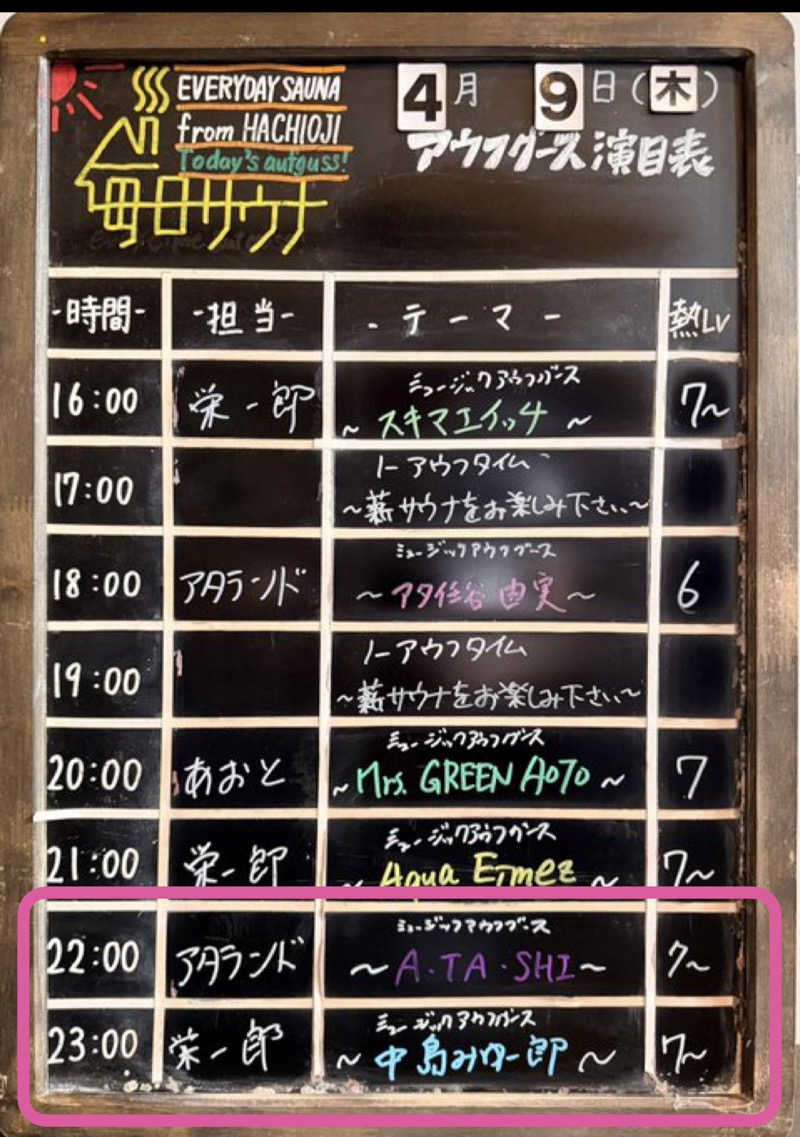 EVERYDAY SAUNA
from HACHIOJI
Today's aufguss!
毎日サウナ
4月 9日(木)
アウフグース演目表
-時間- -担当- -テーマー 熱LV
16:00 栄一郎 ミュージックアウフグース 7~
~スキマエイッチ~
17:00 ノーアウフタイム
~薪サウナをお楽しみ下さい~
18:00 アタランド ミュージックアウフグース 6
~アタ任谷由実~
19:00 ノーアウフタイム
~薪サウナをお楽しみ下さい~
20:00 あおと ミュージックアウフグース 7
~Mrs. GREEN AOTO~
21:00 栄一郎 ミュージックアウフグース 7~
~Aqua Eimez~
22:00 アタランド ミュージックアウフグース 7~
~A・TA・SHI~
23:00 栄一郎 ミュージックアウフグース 7~
~中島みゆ一郎~